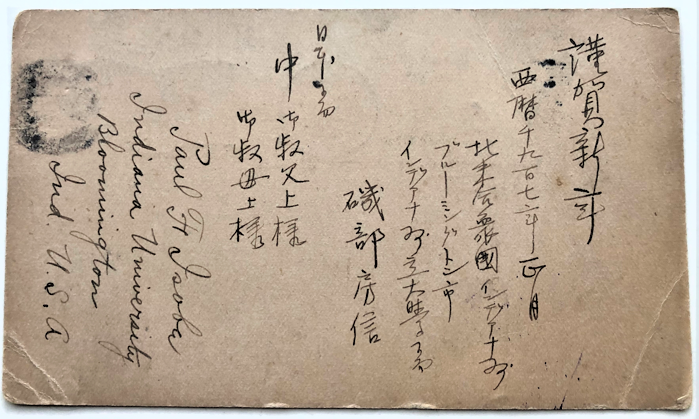 謹賀新年
西暦千九百 年正月
北米合衆國インデアナ州
ブルーミングトン市
インデアナ州立大學ニ而
磯部房信
日本ニ而
中 御叔父上様
御叔母上様
Paul F Isobe
Indiana University
Bloomington
Ind. U.S.A